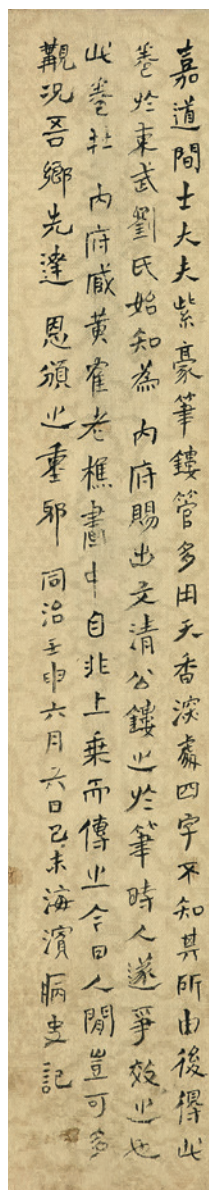 嘉道間士大夫紫豪筆鏤管多用天香深處四字不知其所由後得此
卷於東武劉氏始知為 內府賜出文清公鏤之於筆時人遂爭效之也
此卷在 內府咸黃崔老樵畫中自非上乘而傳之今日人間豈可多
覯況吾鄉先達 恩頒之重耶 同治壬申六月六日己未海濱病史記